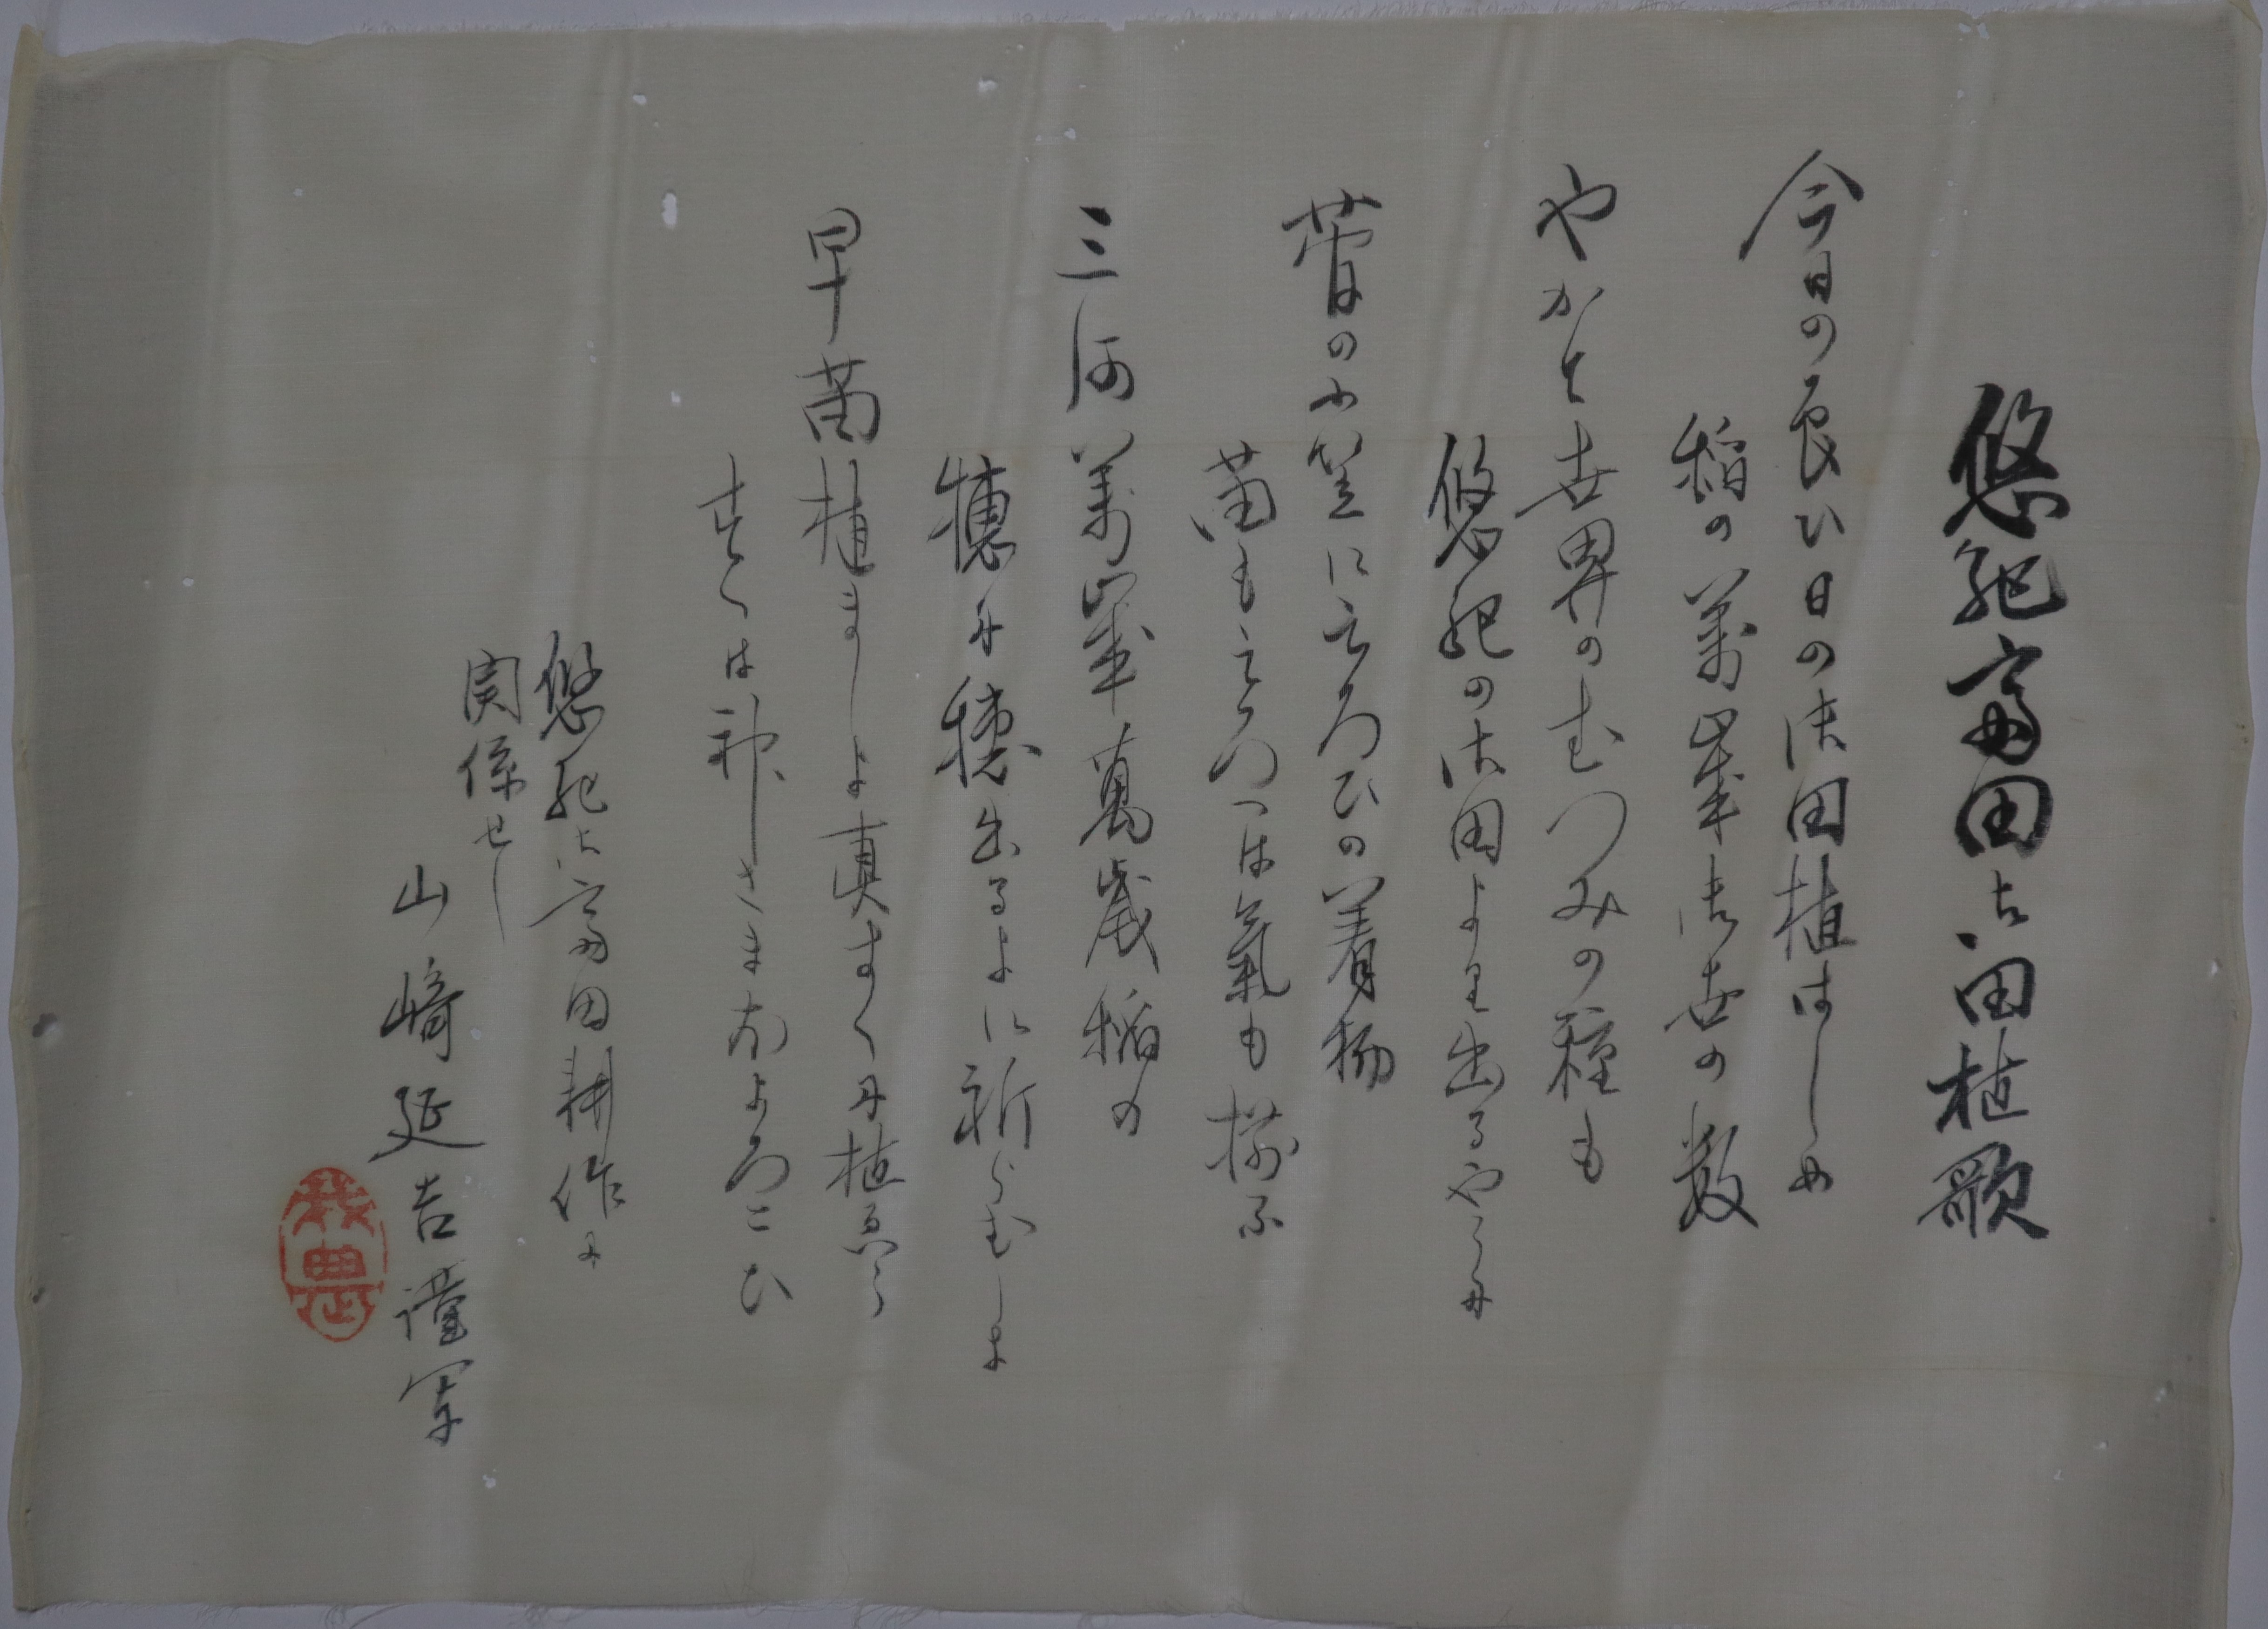 悠紀斎田御田植歌
今日の良ひ日の御田植はしめ
稲の萬歳御世の数
やかて世界のむつみの種も
悠紀の御田より出るやうに
菅の小笠にそろひの着物
苗もそろへは氣も揃ふ
三河萬歳萬歳稲の
穂に穂出るよに祈らむしよ
早苗植ましよ真すくに植ゑい
すくは神さまおよろこひ
悠紀御斎田耕作に
関係せし
山﨑延吉謹写
我農